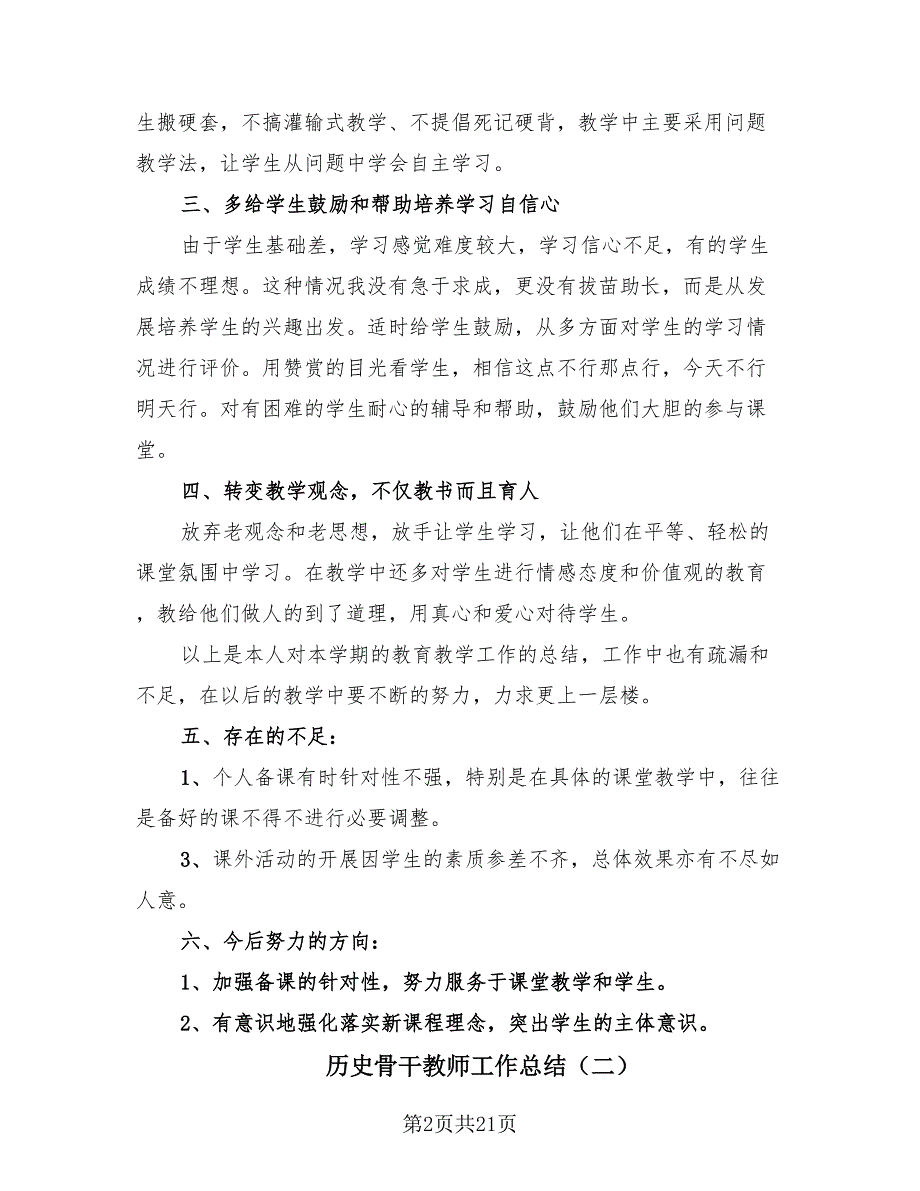 生搬硬套，不搞灌输式教学、不提倡死记硬背，教学中主要采用问题
教学法，让学生从问题中学会自主学习。
三、多给学生鼓励和帮助培养学习自信心
由于学生基础差，学习感觉难度较大，学习信心不足，有的学生
成绩不理想。这种情况我没有急于求成，更没有拔苗助长，而是从发
展培养学生的兴趣出发。适时给学生鼓励，从多方面对学生的学习情
况进行评价。用赞赏的目光看学生，相信这点不行那点行，今天不行
明天行。对有困难的学生耐心的辅导和帮助，鼓励他们大胆的参与课
堂。
四、转变教学观念，不仅教书而且育人
放弃老观念和老思想，放手让学生学习，让他们在平等、轻松的
课堂氛围中学习。在教学中还多对学生进行情感态度和价值观的教育
，教给他们做人的到了道理，用真心和爱心对待学生。
以上是本人对本学期的教育教学工作的总结，工作中也有疏漏和
不足，在以后的教学中要不断的努力，力求更上一层楼。
五、存在的不足：
1、个人备课有时针对性不强，特别是在具体的课堂教学中，往往
是备好的课不得不进行必要调整。
3、课外活动的开展因学生的素质参差不齐，总体效果亦有不尽如
人意。
六、今后努力的方向：
1、加强备课的针对性，努力服务于课堂教学和学生。
2、有意识地强化落实新课程理念，突出学生的主体意识。
历史骨干教师工作总结（二）
第2页共21页